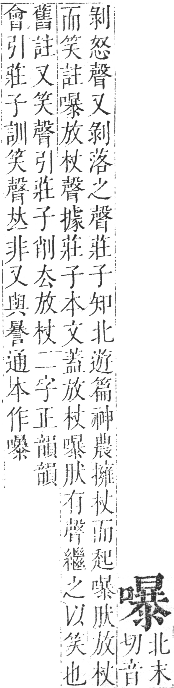 嚗
北末
切音
剝怒聲又剝落之聲莊子知北遊篇神農擁杖而起嚗肰放杖
而笑註嚗放杖聲據莊子本文蓋放杖嚗肰有聲繼之以笑也
舊註又笑聲引莊子削厺放杖二字正韻韻
會引莊子訓笑聲𠀤非又與謈通本作嚗